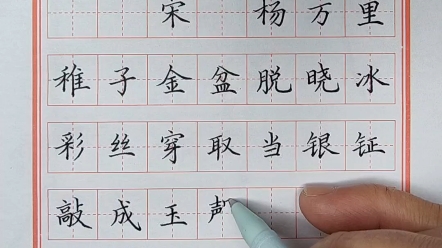 宋 杨万里
稚子金盆脱晓冰
彩丝穿取当银钲
敲成玉声